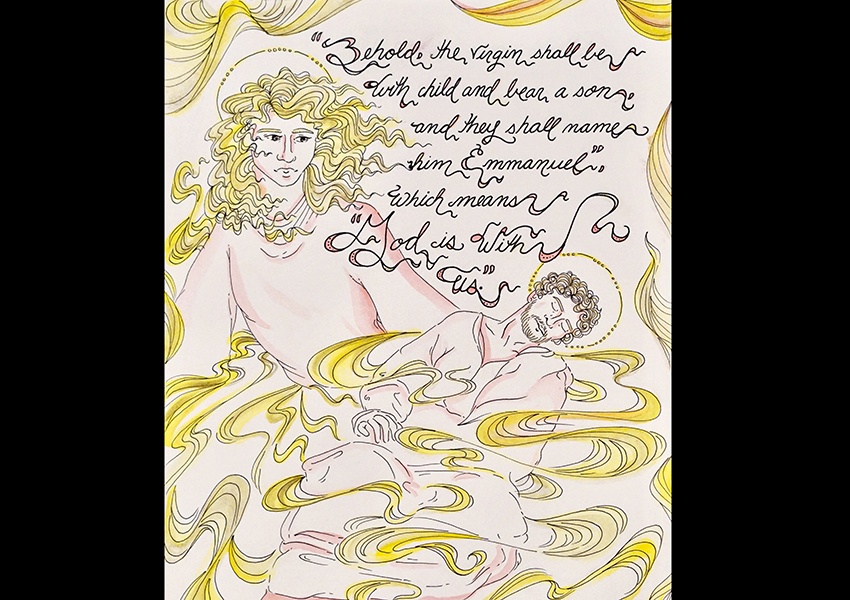 "Behold, the virgin shall be
with child and bear a son,
and they shall name
him Emmanuel",
which means
"God is with
us."